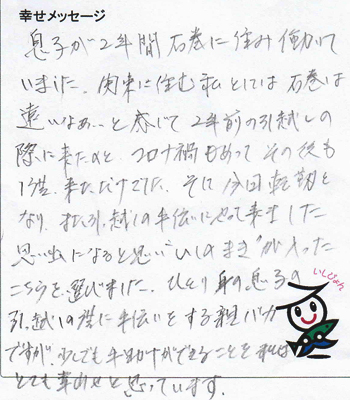 幸せメッセージ
息子が2年間石巻に住み働いて
いました。関東に住む私としては石巻は
遠いなぁ…と感じて2年前の引越しの
際に来たのと、コロナ禍もあってその後も
1度来ただけでした。そして今回転勤と
なり、また引っ越しの手伝いにやって来ました
思い出になると思い"いしのまき"が入った
こちらを選びました。ひとり身の息子の
いしぴょん
引っ越しの度に手伝いをする親バカ
ですが、少しでも手助けができることを私は
とても幸せと思っています。